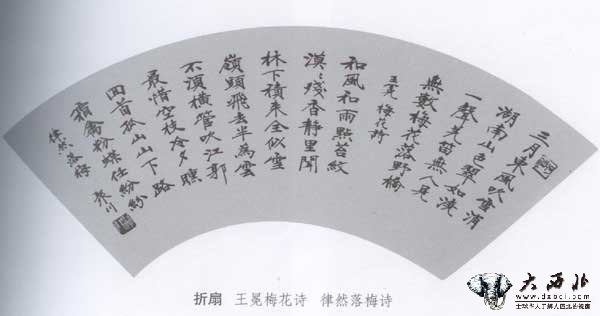 三月東風吹雪消
湖南山色翠如澆
一聲羌笛無人見
無數梅花落野橋
王冕 梅花詩
和風和雨點苔紋
漠漠殘香静里聞
林下積来全似雪
嶺頭飛去半為雲
不須橫管吹江郭
最惜空枝冷夕曛
回首孤山山下路
霜禽粉蝶任紛紛
律然 落梅
折扇 王冕梅花诗 律然落梅诗
大西北
www.dxbei.com